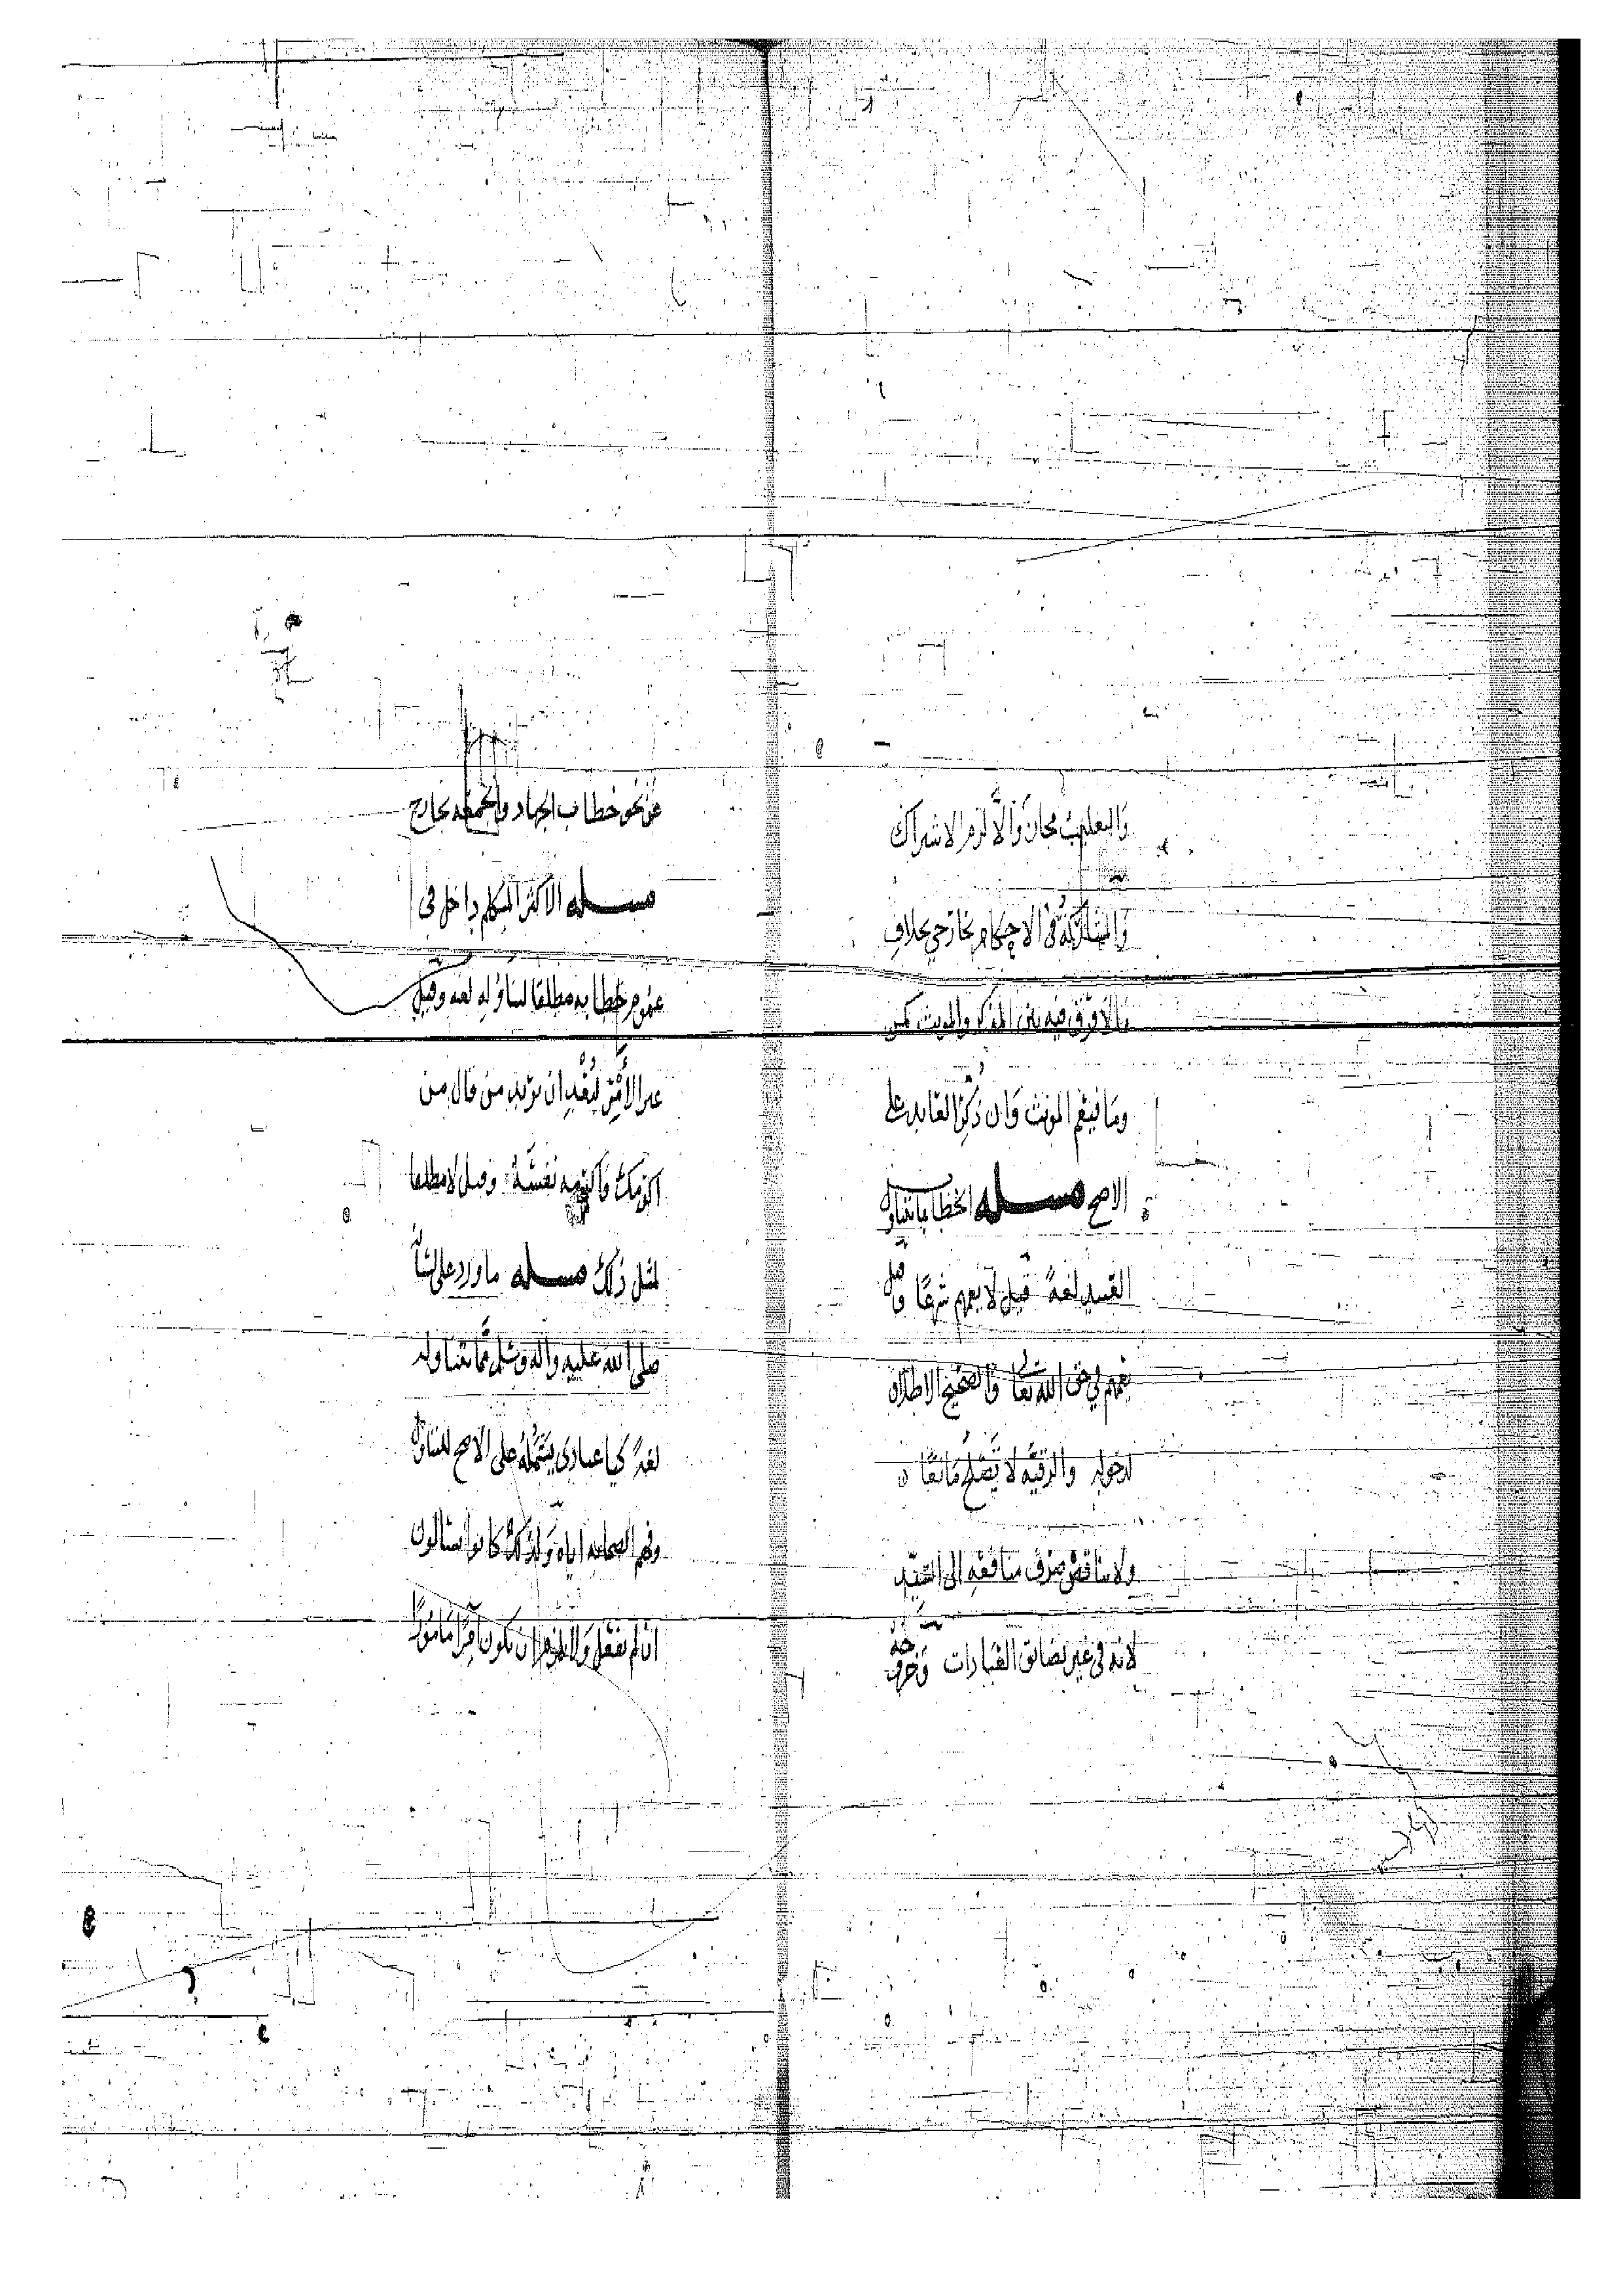 والتغليب مجاز والا لزم الاشتراك
والمشاركة فى الاحكام بخارجي بخلاف
مالا فرق فيه بين المذكر والمونث كمن
وما فيعم المونث وان ذكر العايد على
الاصح مسله الخطاب بما يتناول
العبيد لغة قيل لا يعمهم شرعا وقيل
يعمهم في حق الله تعالى والصحيح الاطلاق
لدخوله والرقية لا تصلح مانعا
ولا يناقض صرف منافعه الى السيد
لانه فى غير تضايق العبادات وخروجه
عن نحو خطاب الجهاد والجمعه بخارج
مسله الاكثر المتكلم داخل فى
عموم خطابه مطلقا لتناوله لغه وقيل
غير الأمر لبعد ان يريد من قال من
اكرمك فاكرمه نفسه وقيل لا مطلقا
لمثل ذلك مسله ما ورد على لسانه
صلى الله عليه واله وسلم مما يتناوله
لغة كيا عبادي يشمله على الاصح للتناول
وفهم الصحابه اياه ولذلك كانوا يسالون
ان لم يفعل ولا يلزم ان يكون آمرا مامورا